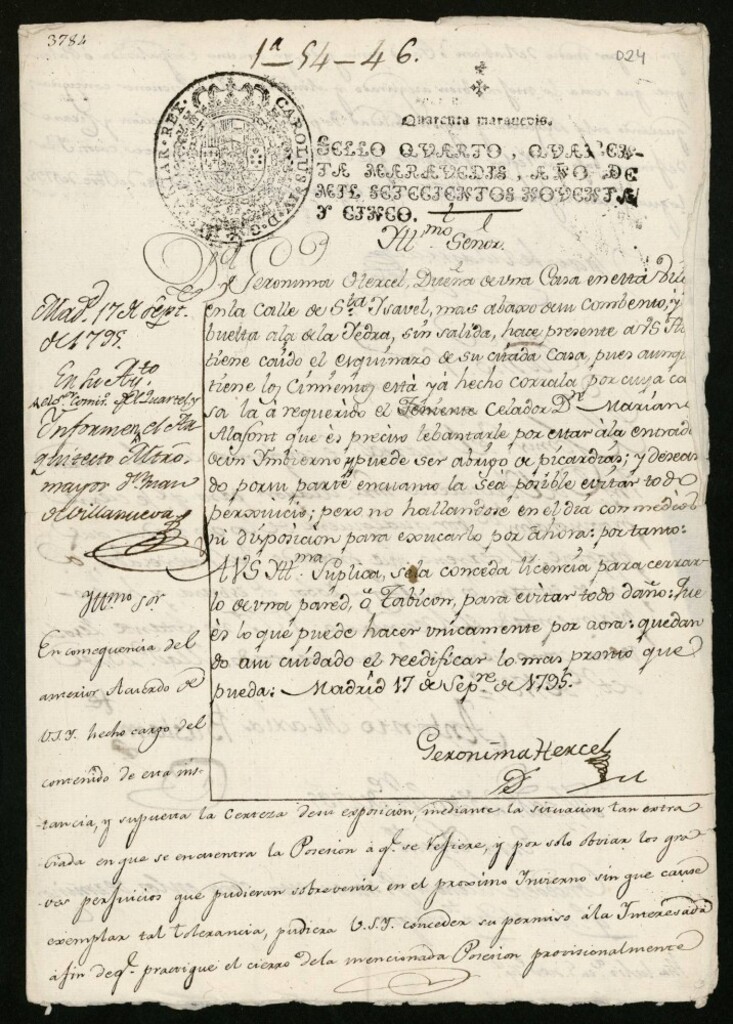 3784
1ª-54-46.
024
CAROLUS IV D. G. HISPANIAR. REX.
Quarenta maravedis.
SELLO QVARTO, QVAREN-
TA MARAVEDIS, AÑO DE
MIL SETECIENTOS NOVENTA
Y CINCO.
Yllmo Señor.
Geronima Hercel, Dueña de vna Casa en esta
en la Calle de Sta Ysavel, mas abaxo de su Combento, y
buelta ala de la Yedra, sin salida, hace presente a VS
tiene caido el esquinazo de su citada Casa, pues aunq
tiene los Cimientos está yá hecho corrala por cuya ca
sa la á requerido el Teniente Celador Dn Marian
Mafont que és preciso lebantarle por estar á la entrad
de un Ymbierno y puede ser abrigo de picardias; y desean
do por su parte en cuanto la sea posible evitar todo
perxuicio; pero no hallandose en el dia con medios
su disposicion para executarlo por ahora: por tanto:
AVS Yllma Suplica, se la conceda licencia para cerrar-
lo de vna pared, ô Tabicon, para evitar todo daño: que
és lo que puede hacer vnicamente por aora: quedan
do a su cuidado el reedificar lo mas pronto que
pueda: Madrid 17 de Sepre de 1795.
Geronima Hercel
Madd. 17 de Sept.
de 1795.
En su Ayto
Quartel, y
Ynformen, el Ar
quitecto Mtro.
mayor Dn Juan
de Villanueva
Yllmo Sor
En consequencia del
anterior Acuerdo de
V.S.Y. hecho cargo del
contenido de esta ins-
tancia, y supuesta la certeza de su exposicion, mediante la situacion tan extra
viada en que se encuentra la Posesion á q.e se refiere, y por solo obviar los gra
ves perjuicios que pudieran sobrevenir en el proximo Invierno sin que cause
exemplar tal tolerancia, pudiera V.S.Y. conceder su permiso á la Interesada
á fin de q.e practique el cierro de la mencionada Posesion provisionalmente